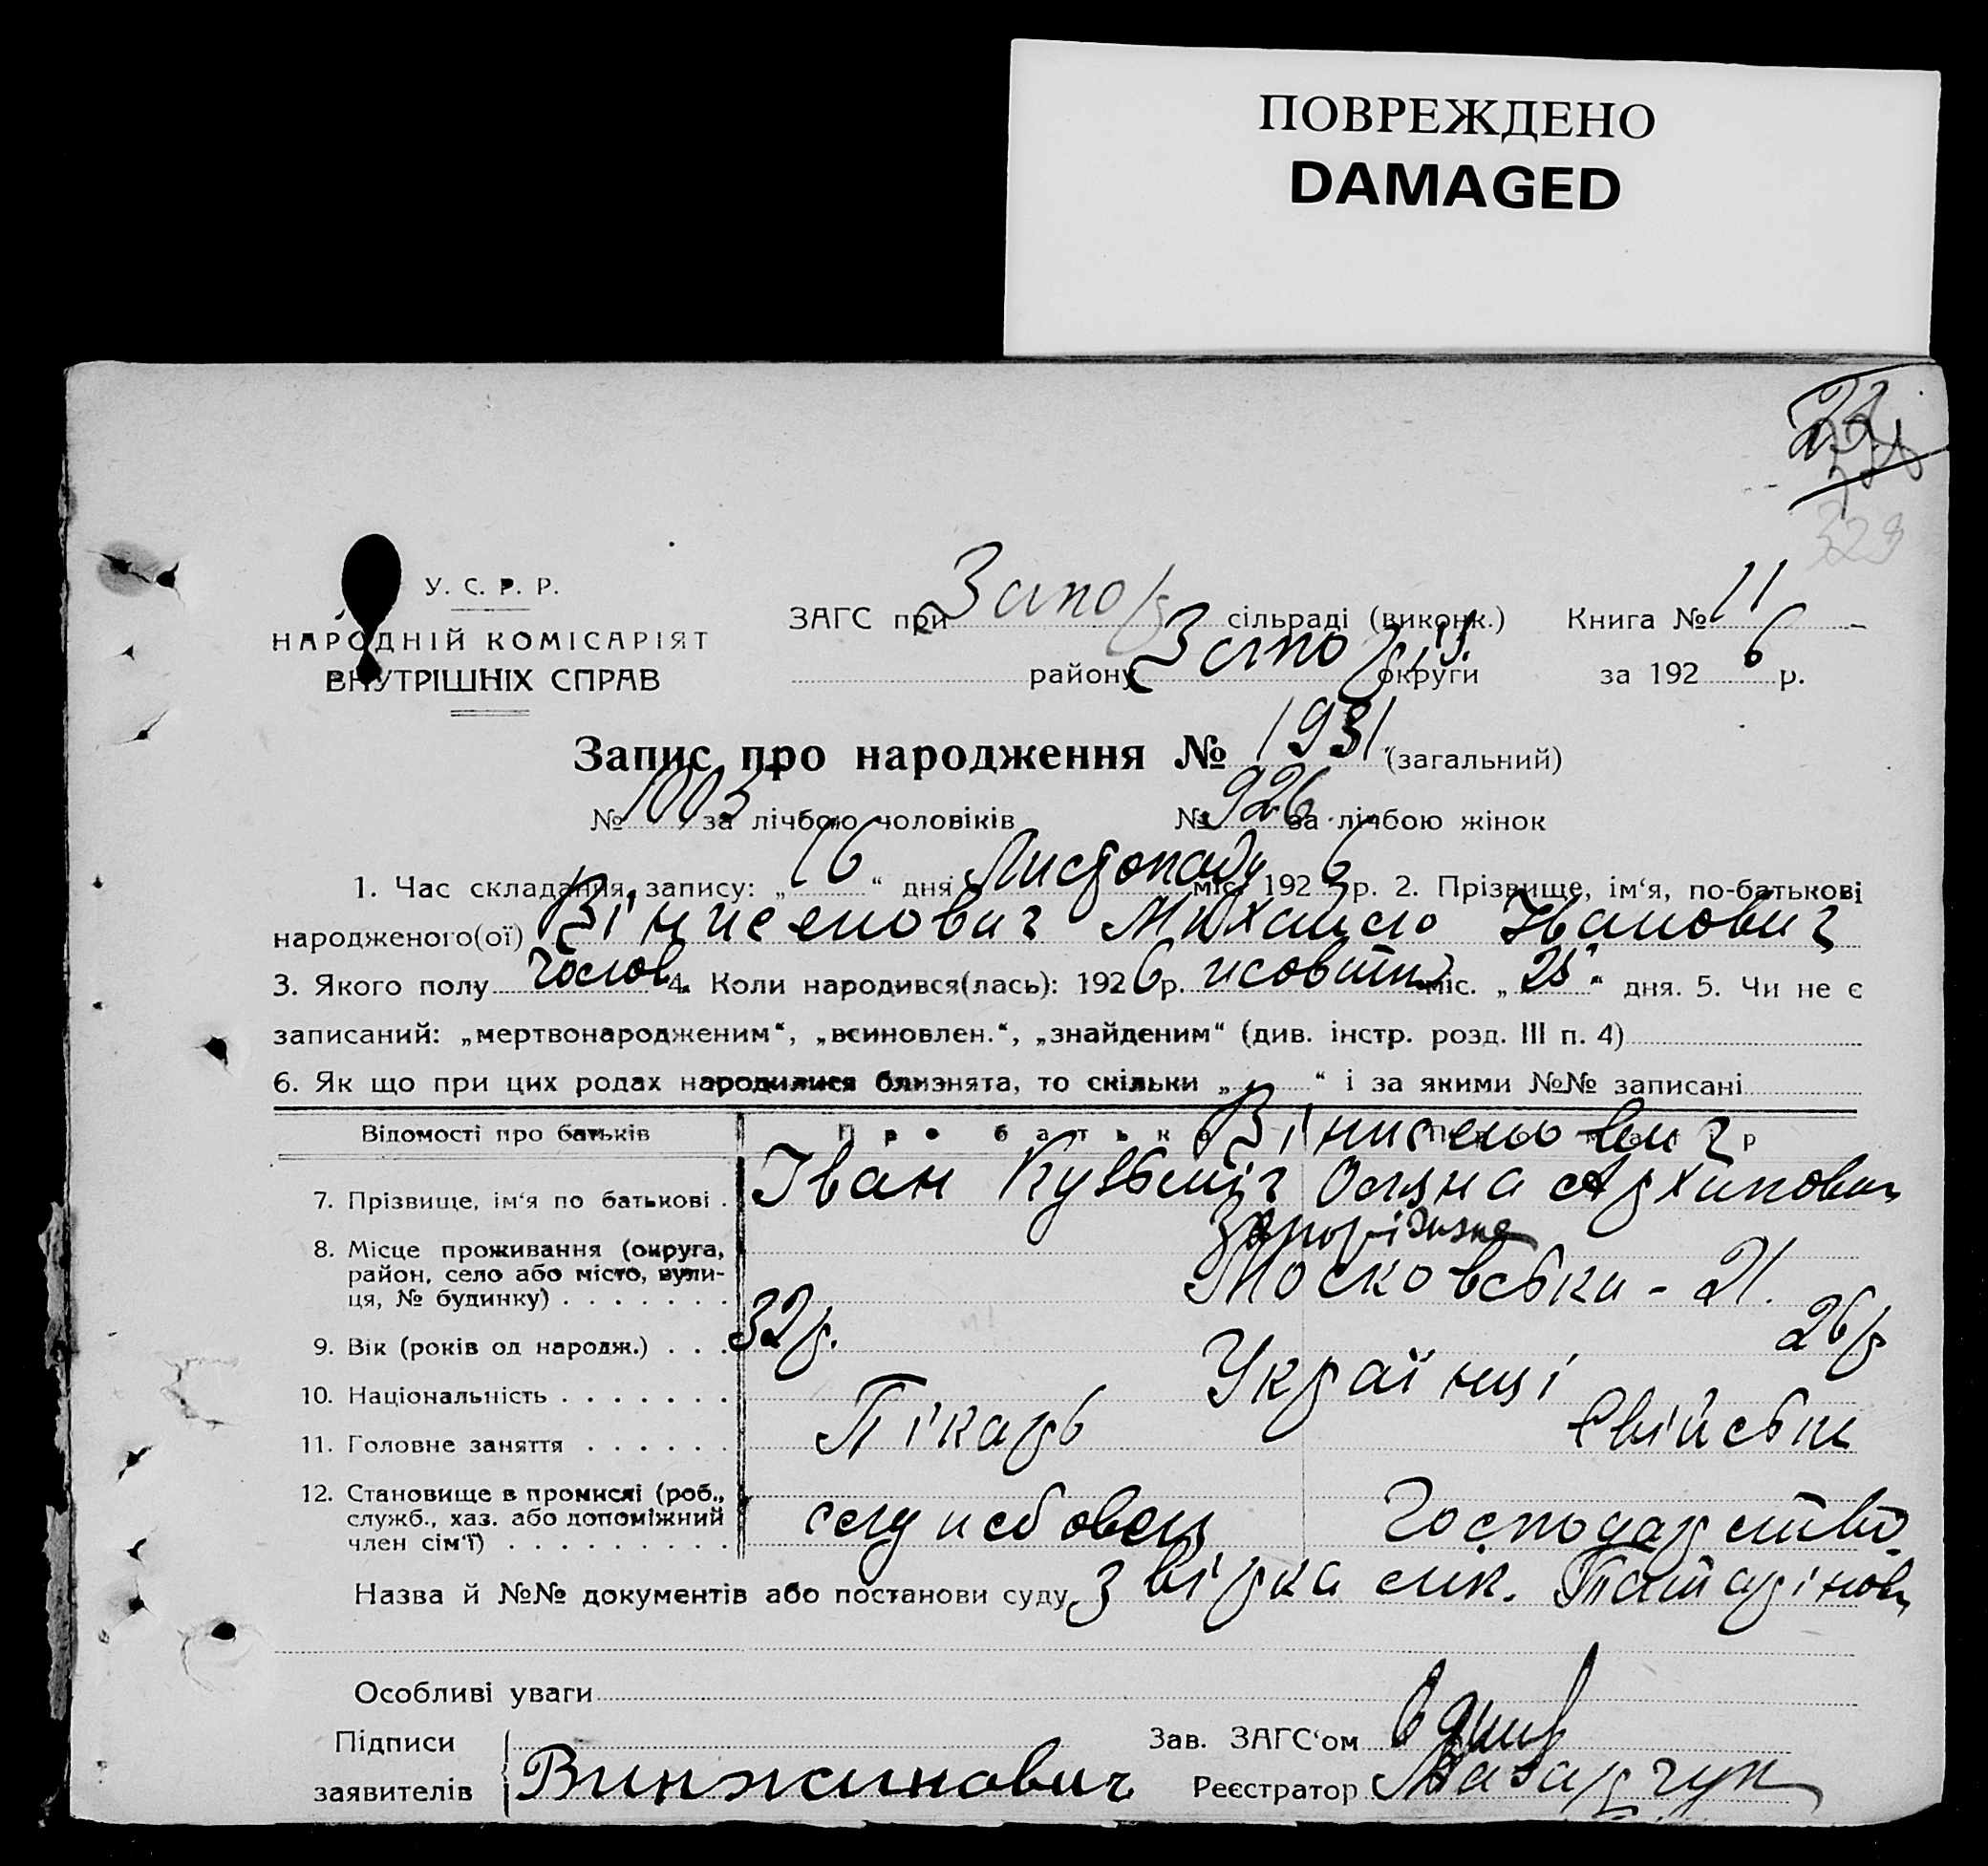 ПОВРЕЖДЕНО
DAMAGED
329
У. С. Р. Р.
НАРОДНІЙ КОМІСАРІЯТ
ВНУТРІШНІХ СПРАВ
ЗАГС при Запо/р сільраді (виконк.) Книга № 11
району Запоріз. округи за 192 6 р.
Запис про народження № 1931 (загальний)
№ 1005 за лічбою чоловіків № 926 за лічбою жінок
1. Час складання запису: „ 16 “ дня Листопаду міс. 192 6 р. 2. Прізвище, ім‘я, по-батькові
народженого(ої) Вінженович Михайло Іванович
3. Якого полу чолов. 4. Коли народився(лась): 192 6 р. жовтня міс. „ 25 “ дня. 5. Чи не є
записаний: „мертвонародженим“, „всиновлен.“, „знайденим“ (див. інстр. розд. III п. 4)
6. Як що при цих родах народилися близнята, то скільки „ “ і за якими №№ записані
Відомості про батьків Про батька Про матір
Вінженович
7. Прізвище, ім‘я по батькові . Іван Кузьміч Оляна Архиповн
8. Місце проживання (округа, район, село або місто, вулиця, № будинку) . . . . . . . Запоріжжа
Московська - 21.
9. Вік (років од народж.) . . . 32 р. 26/р
10. Національність . . . . . . . Українці
11. Головне заняття . . . . . . Пікарь Свійське
12. Становище в промислі (роб., служб., хаз. або допоміжний член сім‘ї) . . . . . . . . . службовець Господарство
Назва й №№ документів або постанови суду Звірка лік. Татарінов
Особливі уваги
Підписи Зав. ЗАГС‘ом
заявителів Винжинович Реєстратор Назарчук